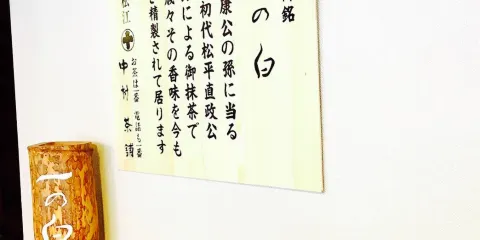 銘
の白
康公の孫に当る
初代松平直政公
による御抹茶で
々その香味を今も
精製されて居ります
お茶は一番 電話も一番
松江 中村茶舗
一の白